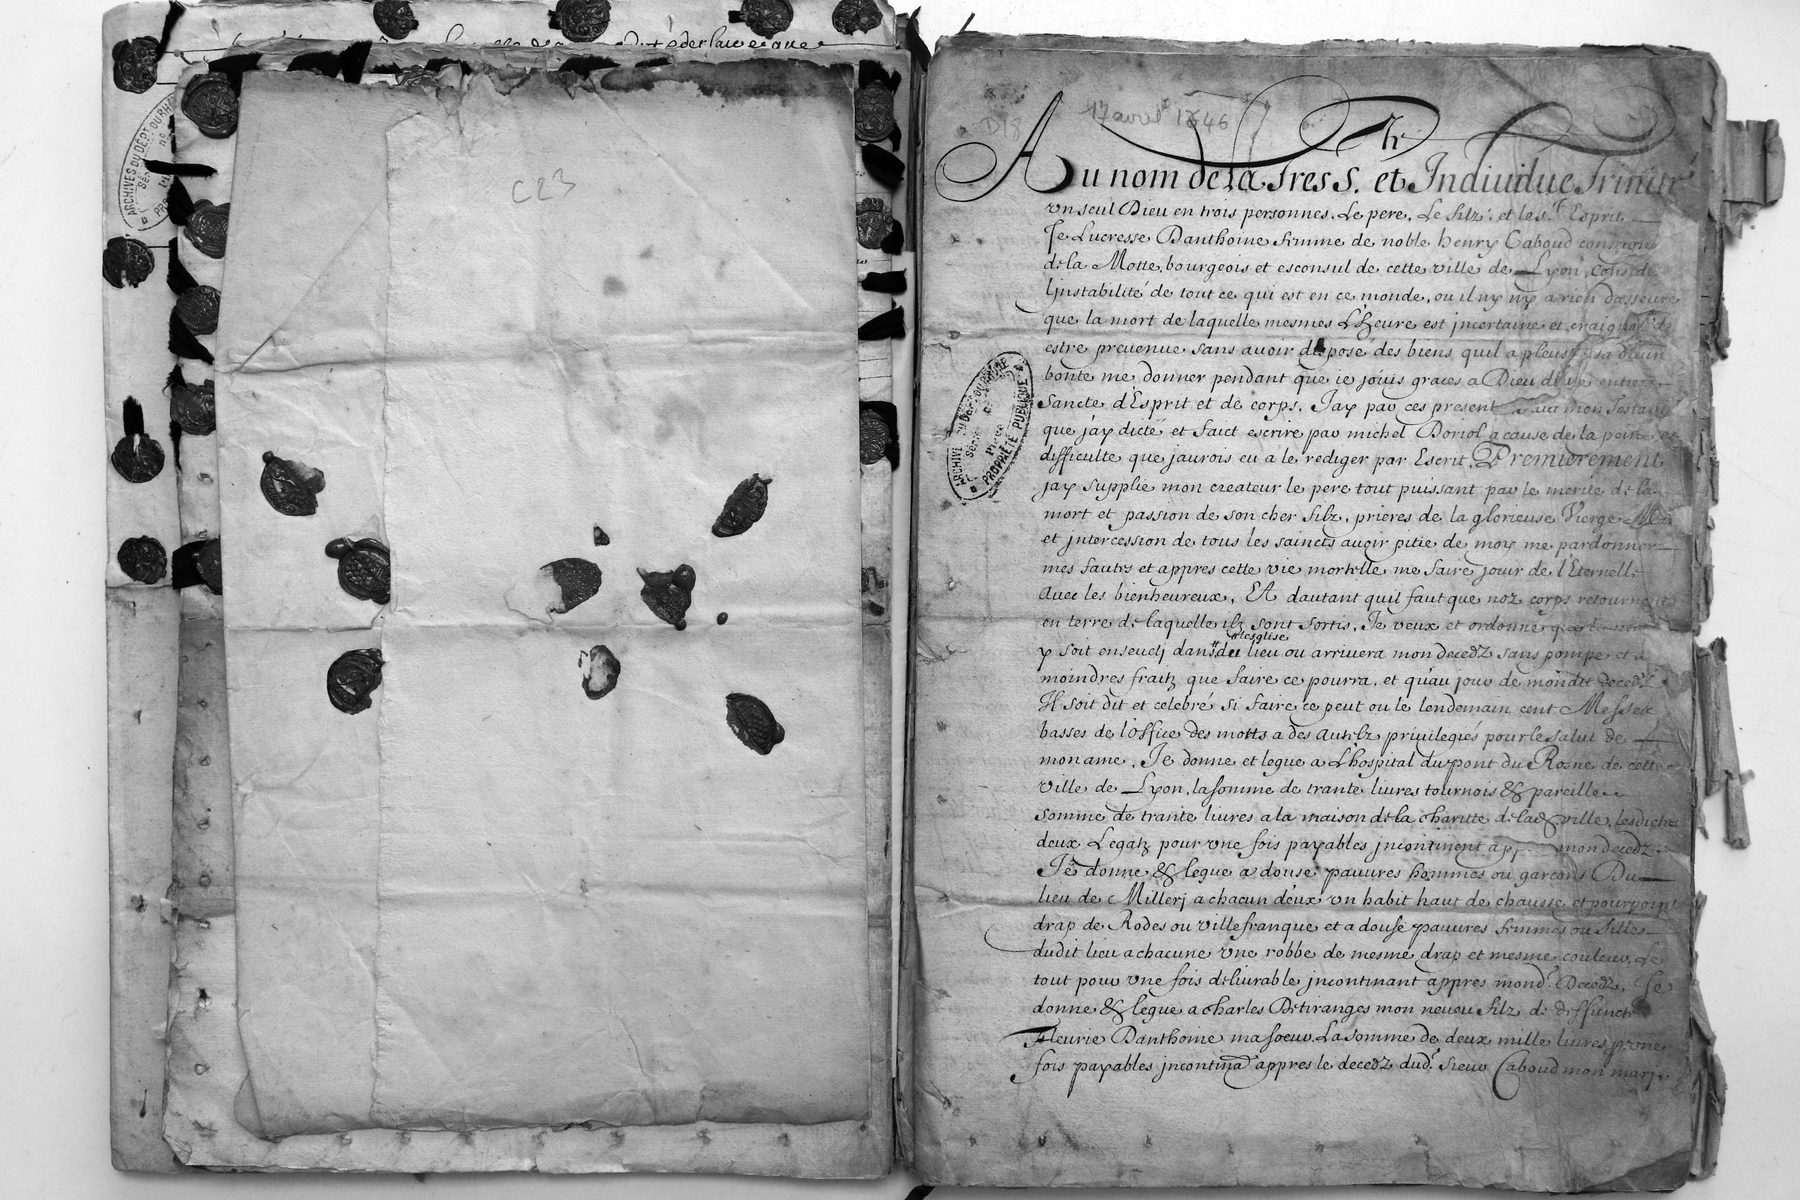 ARCHIVES DU DÉPT DU RHÔNE
C23
17 avril 1646
D18
Au nom de la Tres S. et Indiuidue Trinité
vn seul Dieu en trois personnes, Le pere, Le filz, et le St. Esprit
Je Lucresse Danthoine femme de noble henry Caboud
de la Motte, bourgeois et esconsul de cette ville de Lyon,
Linstabilité de tout ce qui est en ce monde, ou il ny a rien dasseure
que la mort de laquelle mesmes L'heure est jncertaine et craignant de
estre preuenue sans auoir disposé des biens quil a pleust a sa diuin
bonté me donner pendant que ie joüis graces a Dieu de entiere
sancte d'Esprit et de corps, Jay par ces present faict mon Testamt
que jay dicté et faict escrire par michel Doriol a cause de la peine et
difficulte que jaurois eu a le rediger par Escrit, Premierement
jay supplie mon createur le pere tout puissant par le merite de la
mort et passion de son cher filz, prieres de la glorieuse Vierge
et jntercession de tous les saincts auoir pitie de moy me pardonner
mes fautes et appres cette vie mortelle me faire jouir de l'Eternelle
auec les bienheureux, Et dautant quil faut que noz corps retournent
en terre de laquelle ilz sont sortis, Je veux et ordonne que le mien
lesglise
y soit enseuelj dans du lieu ou arriuera mon decedz sans pompe et a
moindres fraitz que faire ce pourra, et quau jour de mondit decedz
Il soit dit et celebré si faire ce peut ou le lendemain cent Messes
basses de l'office des morts a des Autelz priuilegiés pour le salut de
mon ame, Je donne et legue a L'hospital du pont du Rosne de cette
ville de Lyon, la somme de trante liures tournois & pareille
somme de trante liures a la maison de la charitté de lad. ville, lesdicts
deux Legatz pour vne fois payables jncontinent mon decedz
Je donne & legue a douse pauures hommes ou garcons Du
lieu de Millerj a chacun deux vn habit haut de chausse et pourpoint
drap de Rodes ou villefranque et a douse pauures femmes ou filles
dudit lieu a chacune vne robbe de mesme drap et mesme couleur, Le
tout pour vne fois deliurable jncontinant appres mond. Decedz, Je
donne & legue a charles Detiranges mon neueu filz de deffuncte
Fleurie Danthoine ma soeur La somme de deux mille liures p. vne
fois payables jncontinat appres le decedz dud. sieur Caboud mon marj
ARCHIVES DU DÉPT DU RHÔNE
PROPRIÉTÉ PUBLIQUE